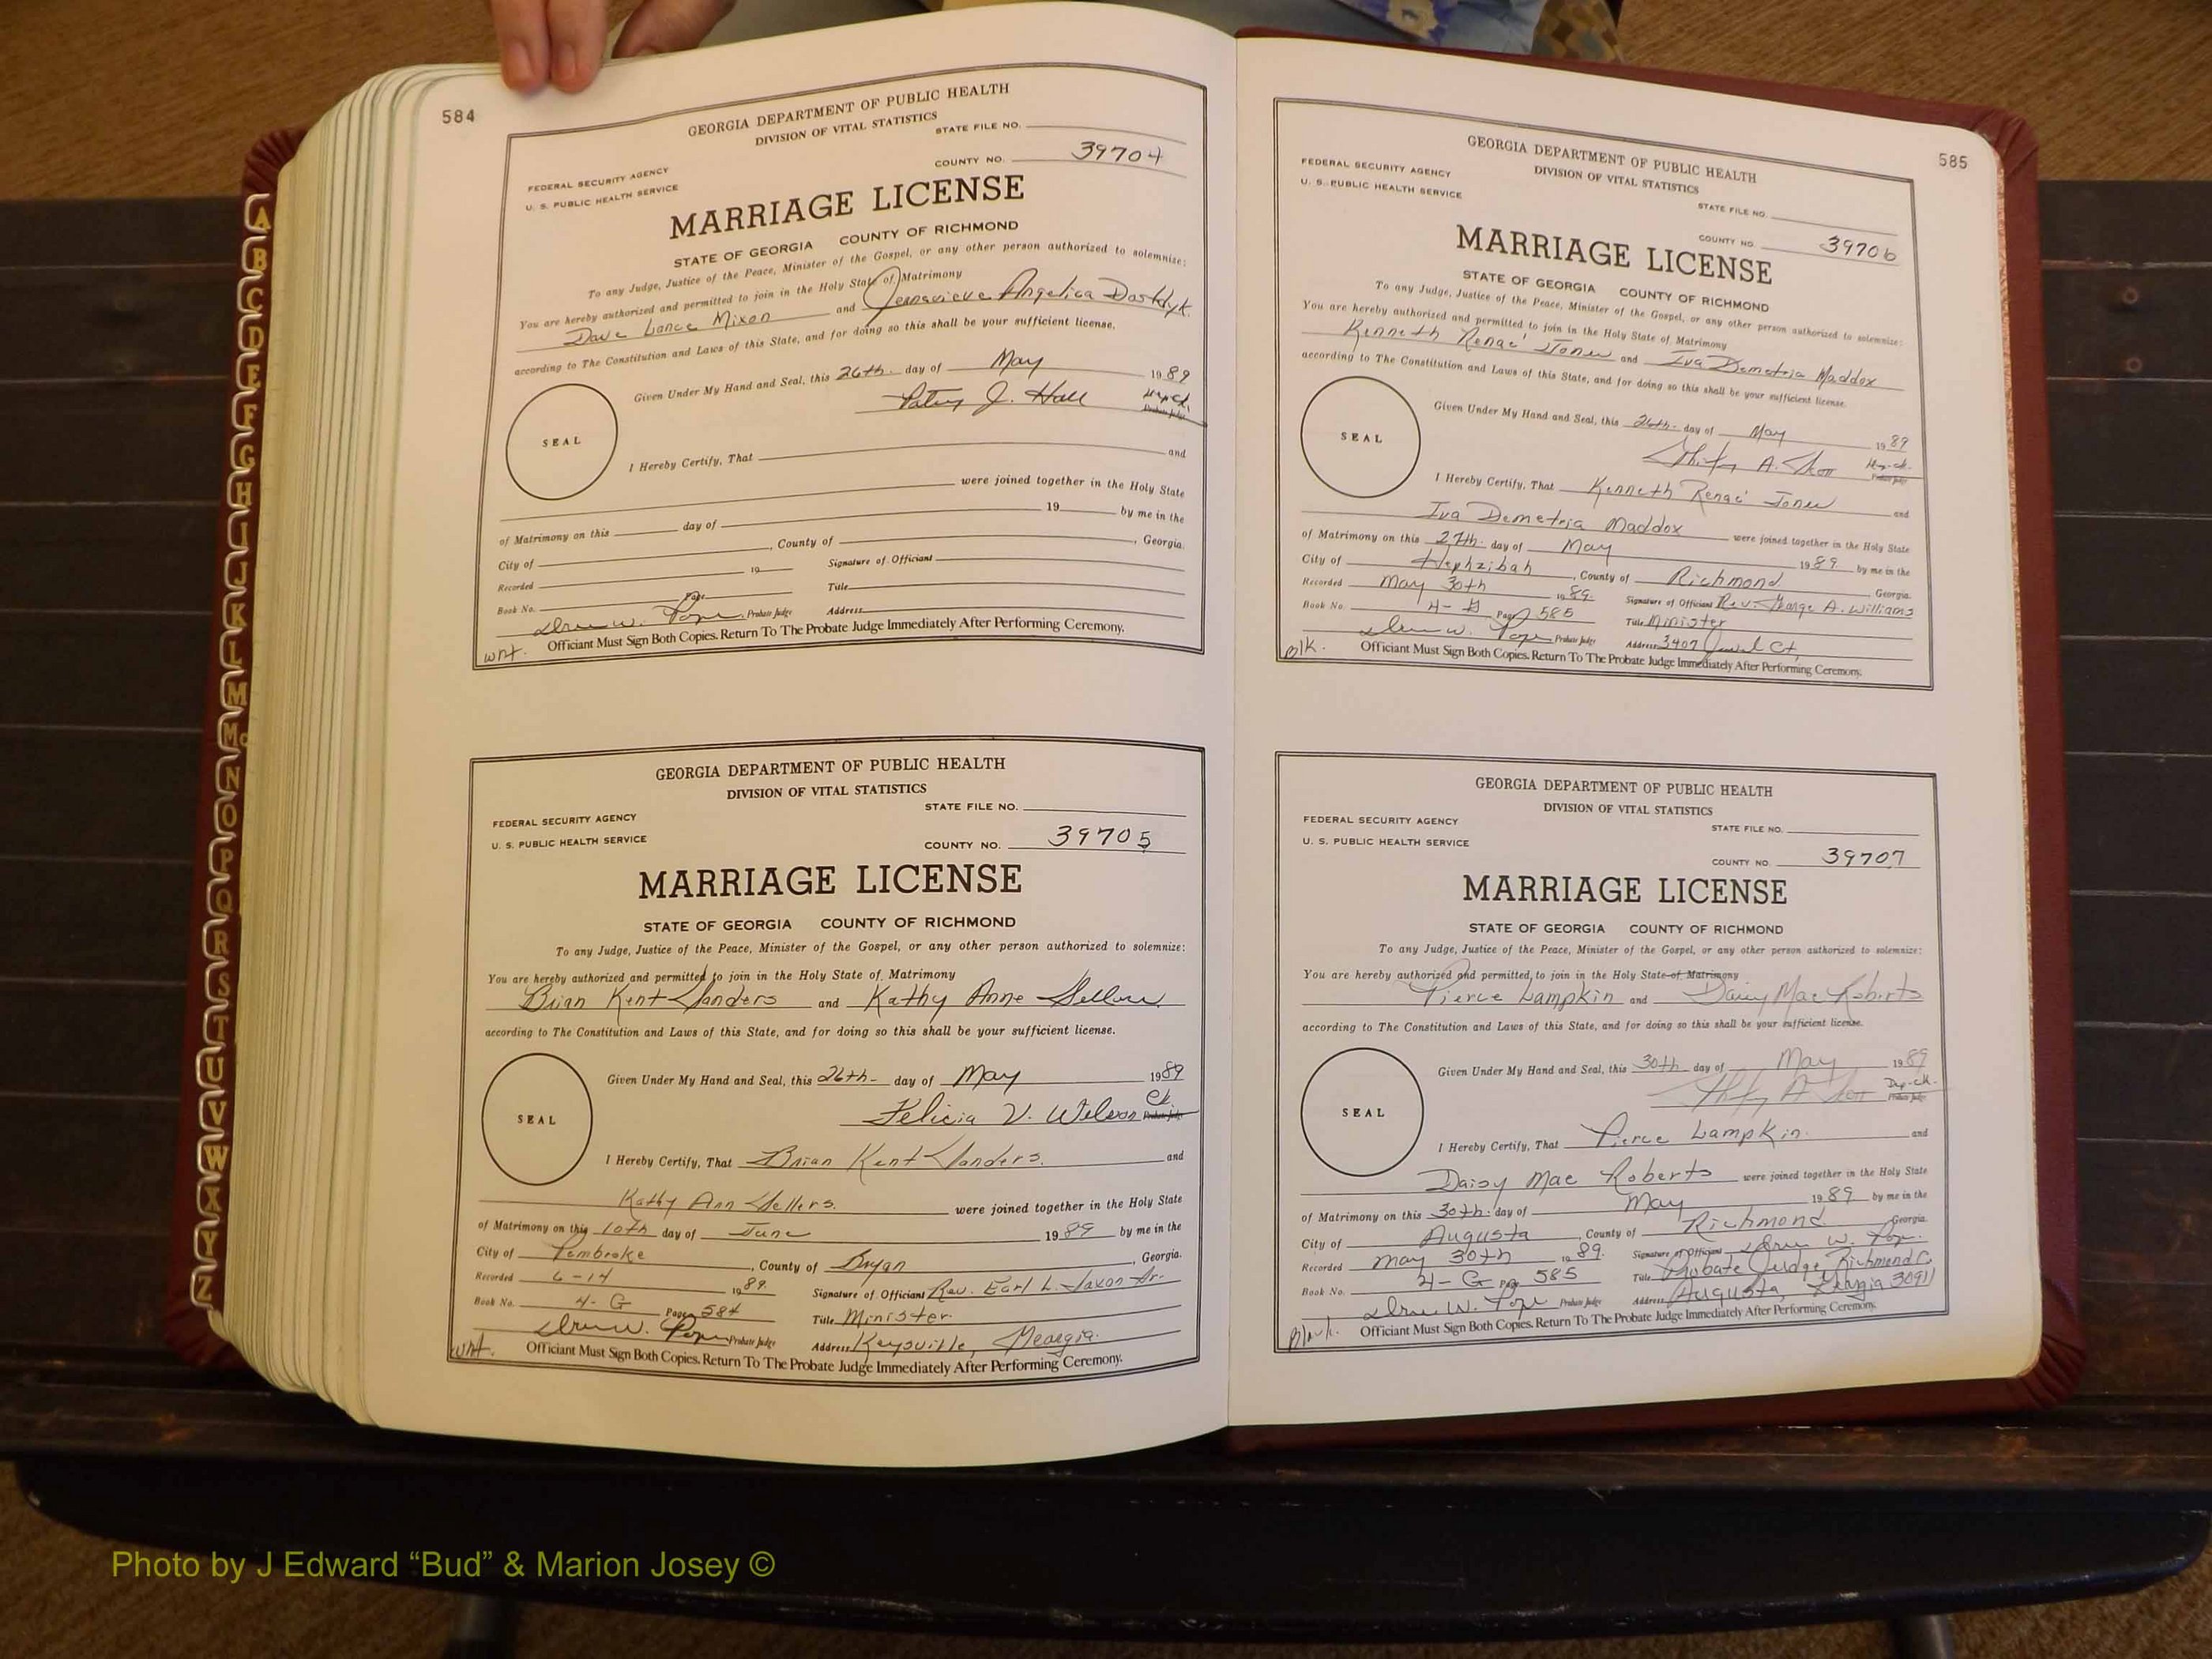 584
GEORGIA DEPARTMENT OF PUBLIC HEALTH
DIVISION OF VITAL STATISTICS
STATE FILE NO.
FEDERAL SECURITY AGENCY
U. S. PUBLIC HEALTH SERVICE
COUNTY NO. 39704
MARRIAGE LICENSE
STATE OF GEORGIA COUNTY OF RICHMOND
To any Judge, Justice of the Peace, Minister of the Gospel, or any other person authorized to solemnize:
You are hereby authorized and permitted to join in the Holy State of Matrimony
Dave Lance Mixon and Genevieve Angelica
according to The Constitution and Laws of this State, and for doing so this shall be your sufficient license.
Given Under My Hand and Seal, this 26th. day of May 1989
J. Hall Probate Judge
SEAL
I Hereby Certify, That and
were joined together in the Holy State
of Matrimony on this day of 19 by me in the
City of , County of , Georgia.
Recorded 19 Signature of Officiant
Book No. Page Title
W. Pope Probate Judge Address
wht. Officiant Must Sign Both Copies. Return To The Probate Judge Immediately After Performing Ceremony.
GEORGIA DEPARTMENT OF PUBLIC HEALTH
DIVISION OF VITAL STATISTICS
STATE FILE NO.
FEDERAL SECURITY AGENCY
U. S. PUBLIC HEALTH SERVICE
COUNTY NO. 39705
MARRIAGE LICENSE
STATE OF GEORGIA COUNTY OF RICHMOND
To any Judge, Justice of the Peace, Minister of the Gospel, or any other person authorized to solemnize:
You are hereby authorized and permitted to join in the Holy State of Matrimony
Brian Kent Sanders and Kathy Anne Sellers
according to The Constitution and Laws of this State, and for doing so this shall be your sufficient license.
Given Under My Hand and Seal, this 26th- day of May 1989
Felicia V. Wilson Ck. Probate Judge
SEAL
I Hereby Certify, That Brian Kent Sanders. and
Kathy Ann Sellers. were joined together in the Holy State
of Matrimony on this 10th day of June 1989 by me in the
City of Pembroke , County of Bryan , Georgia.
Recorded 6-14 1989 Signature of Officiant Rev. Earl L. Saxon Sr.
Book No. 4-G Page 584 Title Minister
W. Pope Probate Judge Address Keysville, Georgia.
wht. Officiant Must Sign Both Copies. Return To The Probate Judge Immediately After Performing Ceremony.
585
GEORGIA DEPARTMENT OF PUBLIC HEALTH
DIVISION OF VITAL STATISTICS
FEDERAL SECURITY AGENCY
U. S. PUBLIC HEALTH SERVICE
STATE FILE NO.
COUNTY NO. 39706
MARRIAGE LICENSE
STATE OF GEORGIA COUNTY OF RICHMOND
To any Judge, Justice of the Peace, Minister of the Gospel, or any other person authorized to solemnize:
You are hereby authorized and permitted to join in the Holy State of Matrimony
Kenneth Renae' Jones and Iva Demetria Maddox
according to The Constitution and Laws of this State, and for doing so this shall be your sufficient license.
Given Under My Hand and Seal, this 26th- day of May 1989
A. Probate Judge
SEAL
I Hereby Certify, That Kenneth Renae' Jones and
Iva Demetria Maddox were joined together in the Holy State
of Matrimony on this 27th. day of May 1989 by me in the
City of Hephzibah , County of Richmond Georgia.
Recorded May 30th 1989. Signature of Officiant Rev. George A. Williams
Book No. 4-G Page 585 Title Minister
W. Pope Probate Judge Address 3407 Ct.
Blk. Officiant Must Sign Both Copies. Return To The Probate Judge Immediately After Performing Ceremony.
GEORGIA DEPARTMENT OF PUBLIC HEALTH
DIVISION OF VITAL STATISTICS
FEDERAL SECURITY AGENCY
STATE FILE NO.
U. S. PUBLIC HEALTH SERVICE
COUNTY NO. 39707
MARRIAGE LICENSE
STATE OF GEORGIA COUNTY OF RICHMOND
To any Judge, Justice of the Peace, Minister of the Gospel, or any other person authorized to solemnize:
You are hereby authorized and permitted, to join in the Holy State of Matrimony
Pierce Lampkin and Daisy Mae Roberts
according to The Constitution and Laws of this State, and for doing so this shall be your sufficient license.
Given Under My Hand and Seal, this 30th day of May 1989
A Dep-ck- Probate Judge
SEAL
I Hereby Certify, That Pierce Lampkin. and
Daisy Mae Roberts were joined together in the Holy State
of Matrimony on this 30th. day of May 1989 by me in the
City of Augusta , County of Richmond Georgia.
Recorded May 30th 1989. Signature of Officiant W. Pope
Book No. 4-G Page 585 Title Probate Judge, Richmond C.
W. Pope Probate Judge Address Augusta, Georgia 30911
Officiant Must Sign Both Copies. Return To The Probate Judge Immediately After Performing Ceremony.
A
B
C
D
E
F
G
H
I
J
K
L
M
Mc
N
O
P
Q
R
S
T
U
V
W
X
Y
Z
Photo by J Edward “Bud” & Marion Josey ©